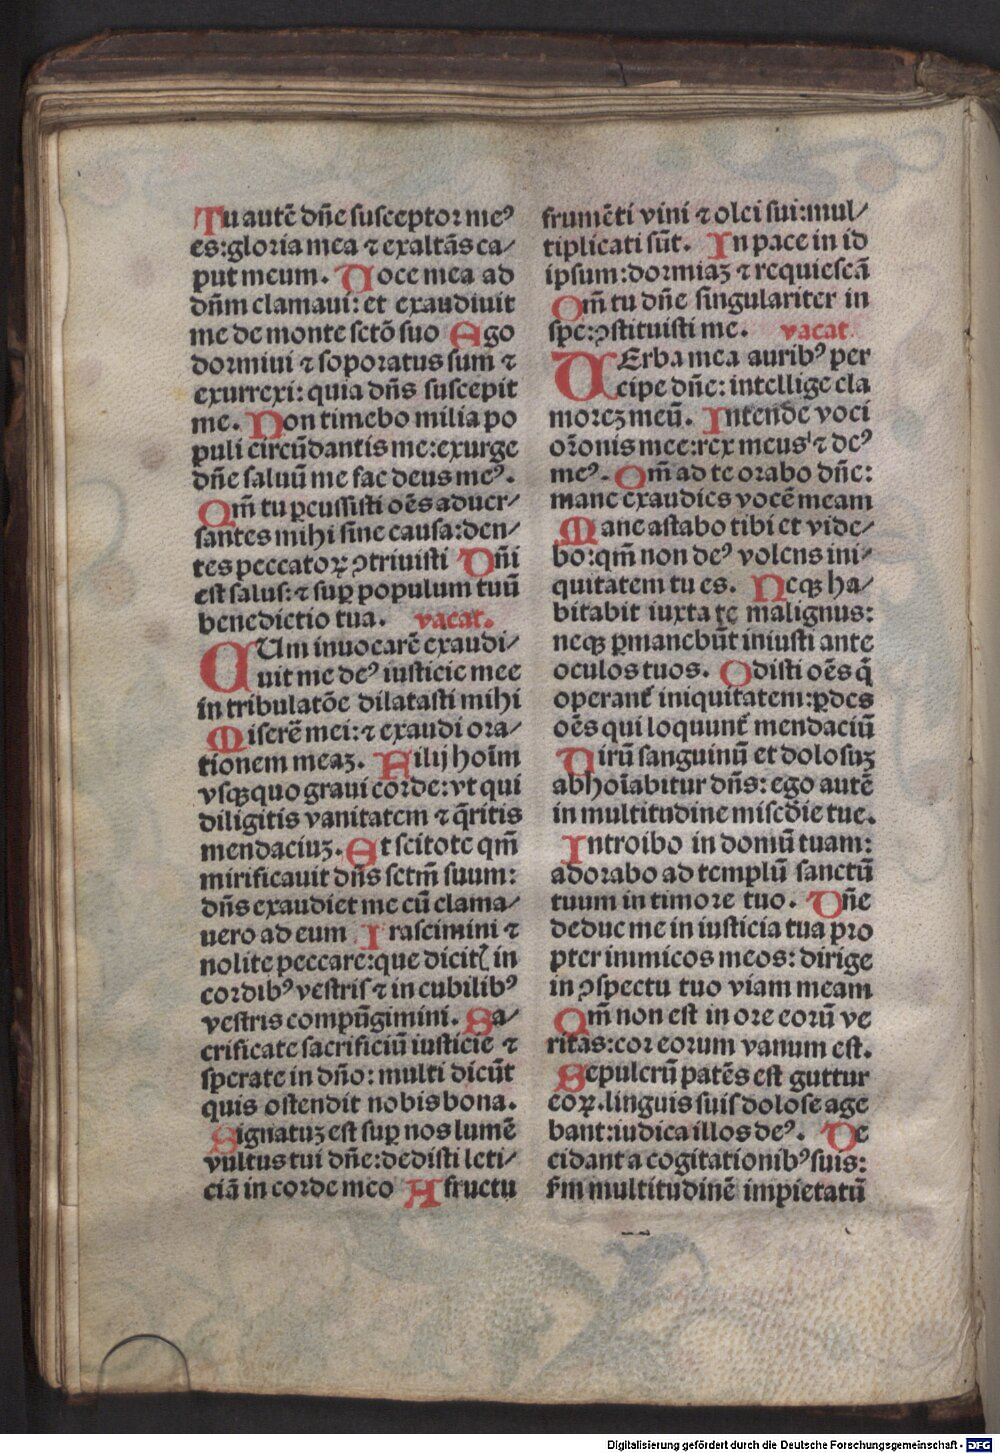 Tu autē dn̄e susceptor meꝰ
es:gloria mea ⁊ exaltās ca/
put meum. Voce mea ad
dn̄m clamaui: et exaudiuit
me de monte sctō suo Ego
dormiui ⁊ soporatus sum ⁊
exurrexi: quia dn̄s suscepit
me. Non timebo milia po
puli circūdantis me:exurge
dn̄e saluū me fac deus meꝰ.
Qm̄ tu ꝑcussisti oēs aduer/
santes mihi sine causa:den/
tes peccatoꝝ ꝯtriuisti Dn̄i
est salus: ⁊ suꝑ populum tuū
benedictio tua. vacat.
CUm inuocarē exaudi/
uit me deꝰ iusticie mee
in tribulatōe dilatasti mihi
Miserē mei: ⁊ exaudi ora/
tionem meaꝫ. Filij hoīm
vsqꝫquo graui corde: vt qui
diligitis vanitatem ⁊ q̄ritis
mendaciuꝫ. Et scitote qm̄
mirificauit dn̄s sctm̄ suum:
dn̄s exaudiet me cū clama/
uero ad eum Irascimini ⁊
nolite peccare:que dicitꝭ in
cordibꝰ vestris ⁊ in cubilibꝰ
vestris compūgimini. Sa/
crificate sacrificiū iusticie ⁊
sperate in dn̄o: multi dicūt
quis ostendit nobis bona.
Signatuꝫ est suꝑ nos lumē
vultus tui dn̄e:dedisti leti/
ciā in corde meo A fructu
frumēti vini ⁊ olei sui:mul/
tiplicati sūt. In pace in id
ipsum:dormiaꝫ ⁊ requiescā
Qm̄ tu dn̄e singulariter in
spe:ꝯstituisti me. vacat.
VErba mea auribꝰ per
cipe dn̄e: intellige cla
moreꝫ meū. Intende voci
or̄onis mee:rex meus ⁊ deꝰ
meꝰ. Qm̄ ad te orabo dn̄e:
mane exaudies vocē meam
Mane astabo tibi et vide/
bo:qm̄ non deꝰ volens ini/
quitatem tu es. Neqꝫ ha/
bitabit iuxta te malignus:
neqꝫ ꝑmanebūt iniusti ante
oculos tuos. Odisti oēs q̄
operant᷑ iniquitatem:ꝑdes
oēs qui loquunt᷑ mendaciū
Virū sanguinū et dolosuꝫ
abhoīabitur dn̄s: ego autē
in multitudine misc̄die tue.
Introibo in domū tuam:
adorabo ad templū sanctū
tuum in timore tuo. Dn̄e
deduc me in iusticia tua pro
pter inimicos meos: dirige
in ꝯspectu tuo viam meam
Qm̄ non est in ore eorū ve
ritas:cor eorum vanum est.
Sepulcrū patēs est guttur
eoꝝ.linguis suis dolose age
bant:iudica illos deꝰ. De
cidant a cogitationibꝰ suis:
s̄m multitudinē impietatū
Digitalisierung gefördert durch die Deutsche Forschungsgemeinschaft - DFG